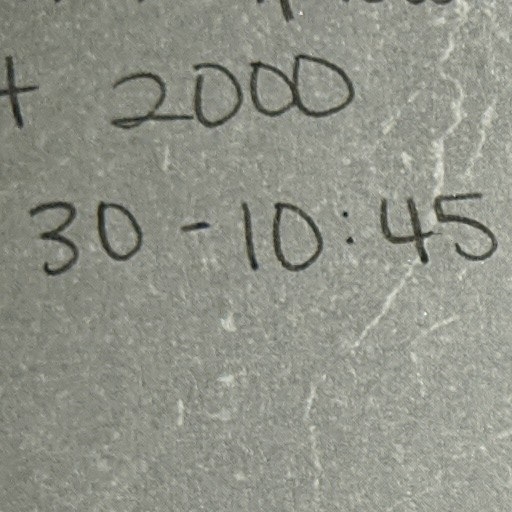 + 2000
30 - 10:45